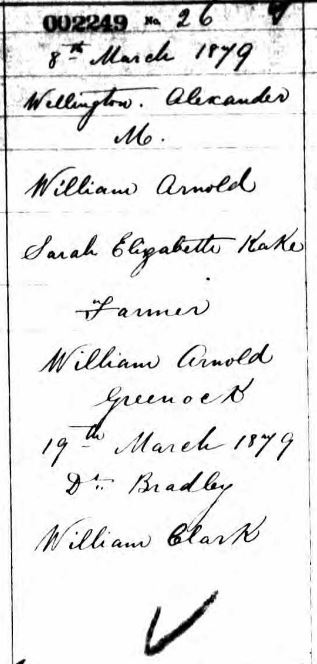 002249 No. 26
8th March 1879
Wellington. Alexander
M.
William Arnold
Sarah Elizabeth Kake
Farmer
William Arnold
Greenock
19th March 1879
Dr. Bradley
William Clark